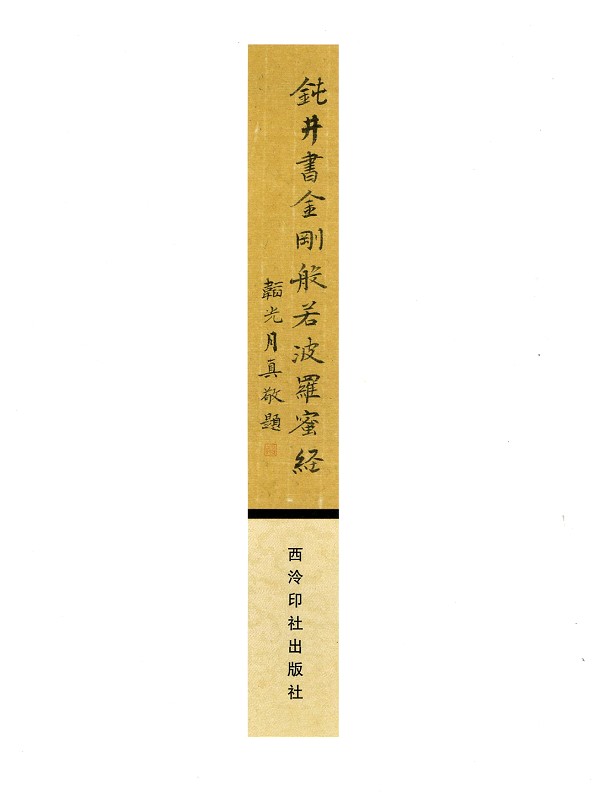 鈍井書金剛般若波羅蜜経
韜光月真敬題
西泠印社出版社